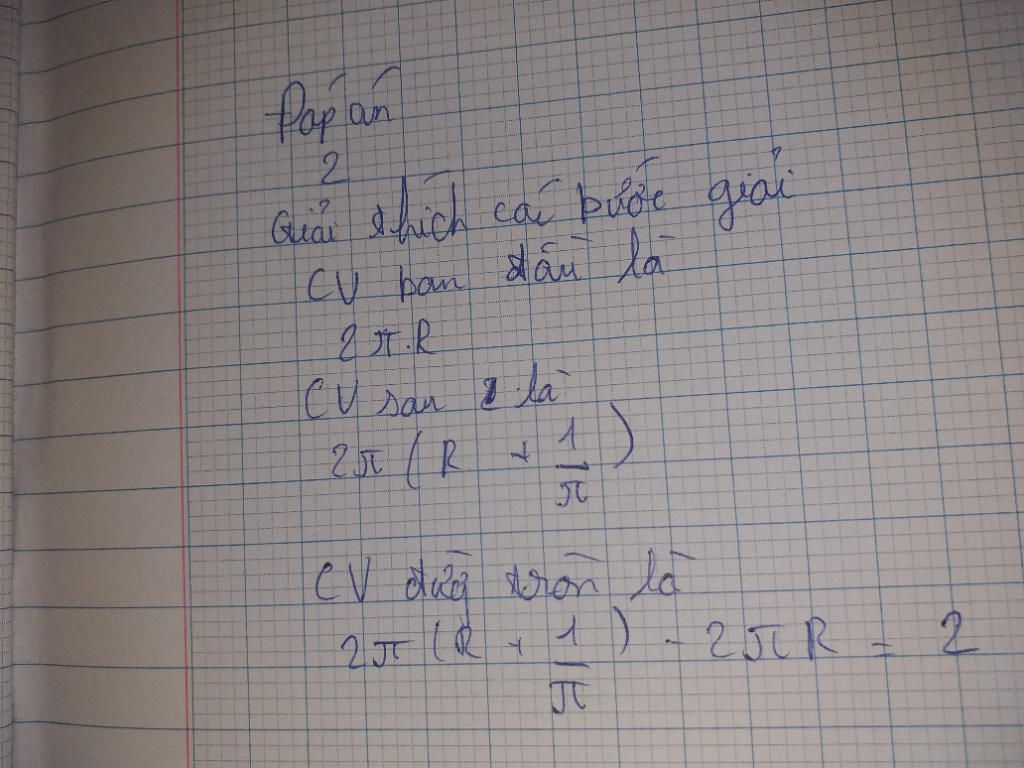 Đáp án
2
Giải thích các bước giải
CV ban đầu là
2π.R
CV sau là
2π(R + 1/π)
CV đường tròn là
2π(R + 1/π) - 2πR = 2